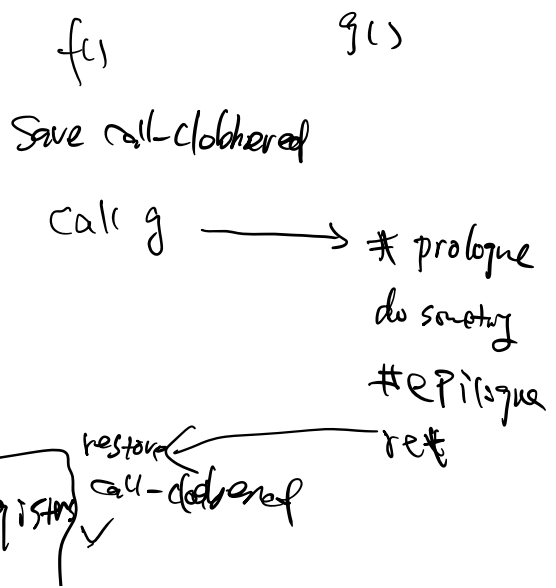 f()
g()
Save call-clobbered
call g
# prologue
do something
# epilogue
ret
restore
call-clobbered